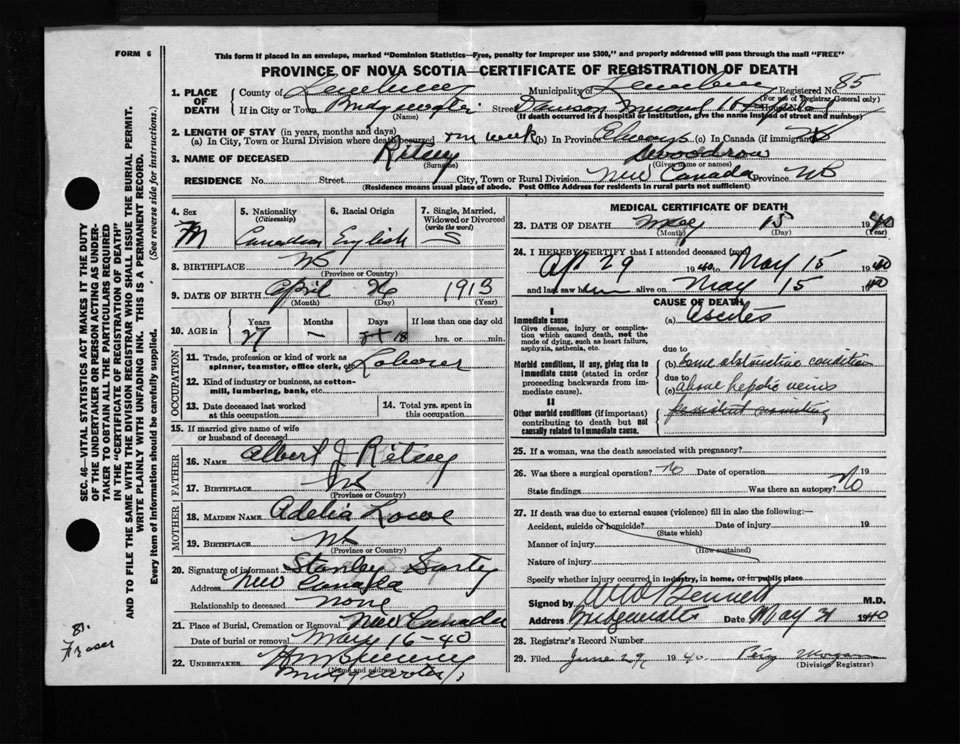 FORM 6
This form if placed in an envelope, marked "Dominion Statistics—Free, penalty for improper use $300," and properly addressed will pass through the mail "FREE"
PROVINCE OF NOVA SCOTIA—CERTIFICATE OF REGISTRATION OF DEATH
SEC. 46—VITAL STATISTICS ACT MAKES IT THE DUTY
OF THE UNDERTAKER OR PERSON ACTING AS UNDER-
TAKER TO OBTAIN ALL THE PARTICULARS REQUIRED
IN THE "CERTIFICATE OF REGISTRATION OF DEATH"
AND TO FILE THE SAME WITH THE DIVISION REGISTRAR WHO SHALL ISSUE THE BURIAL PERMIT.
WRITE PLAINLY WITH UNFADING INK. THIS IS A PERMANENT RECORD.
Every item of information should be carefully supplied. (See reverse side for instructions.)
81.
Fraser
1. PLACE OF DEATH
County of Lunenburg Municipality of Lunenburg Registered No. 85
(For use of Registrar General only)
If in City or Town Bridgewater Street Dawson Memorial Hospital
(Name) (If death occurred in a hospital or institution, give the name instead of street and number)
2. LENGTH OF STAY (in years, months and days)
(a) In City, Town or Rural Division where death occurred week (b) In Province Always (c) In Canada (if immigrant)
3. NAME OF DECEASED Ritcey Woodrow
(Surname) (Given name or names)
RESIDENCE No. Street City, Town or Rural Division New Canada Province NS
(Residence means usual place of abode. Post Office Address for residents in rural parts not sufficient)
4. Sex M
5. Nationality (Citizenship) Canadian
6. Racial Origin English
7. Single, Married, Widowed or Divorced (write the word) S
8. BIRTHPLACE NS
(Province or Country)
9. DATE OF BIRTH April 26 1913
(Month) (Day) (Year)
10. AGE in Years Months Days If less than one day old
27 — 18 hrs. or min.
OCCUPATION
11. Trade, profession or kind of work as spinner, teamster, office clerk, etc. Laborer
12. Kind of industry or business, as cotton-mill, lumbering, bank, etc.
13. Date deceased last worked at this occupation
14. Total yrs. spent in this occupation
15. If married give name of wife or husband of deceased
FATHER
16. NAME Albert J Ritcey
17. BIRTHPLACE NS
(Province or Country)
MOTHER
18. MAIDEN NAME Adelia Lowe
19. BIRTHPLACE NS
(Province or Country)
20. Signature of informant Stanley Sarty
Address New Canada
Relationship to deceased none
21. Place of Burial, Cremation or Removal New Canada
Date of burial or removal May 16-40
22. UNDERTAKER
(Name and address)
Bridgewater
MEDICAL CERTIFICATE OF DEATH
23. DATE OF DEATH May 15 1940
(Month) (Day) (Year)
24. I HEREBY CERTIFY that I attended deceased from
Apr 29 1940 to May 15 1940
and last saw him alive on May 15 1940
CAUSE OF DEATH
I
Immediate cause
Give disease, injury or complication which caused death, not the mode of dying, such as heart failure, asphyxia, asthenia, etc.
(a) Ascites
due to
Morbid conditions, if any, giving rise to immediate cause (stated in order proceeding backwards from immediate cause).
(b) Some obstructive condition
due to
(c) above hepatic veins
II
Other morbid conditions (if important) contributing to death but not causally related to immediate cause.
Persistent vomiting
25. If a woman, was the death associated with pregnancy?
26. Was there a surgical operation? No Date of operation 19
State findings Was there an autopsy? No
27. If death was due to external causes (violence) fill in also the following:—
Accident, suicide or homicide? Date of injury 19
(State which)
Manner of injury
(How sustained)
Nature of injury
Specify whether injury occurred in industry, in home, or in public place
Signed by Bennett M.D.
Address Bridgewater Date May 31 1940
28. Registrar's Record Number
29. Filed June 29, 1940 Morgan
(Division Registrar)